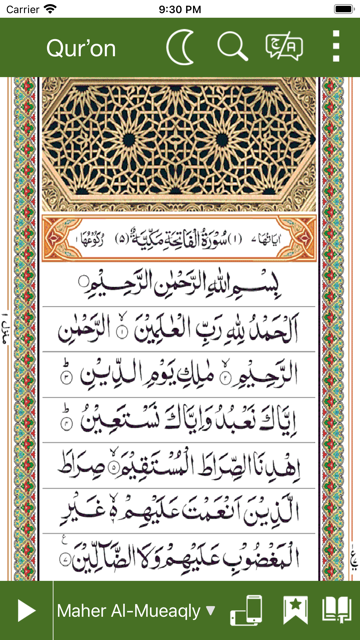 Carrier 9:30 PM
Qur’on
اٰیَاتُهَا ۷ (۱) سُوْرَةُ الْفَاتِحَةِ مَكِّيَّةٌ (۵) رُكُوْعُهَا ۱
بِسْمِ اللّٰهِ الرَّحْمٰنِ الرَّحِيْمِ
اَلْحَمْدُ لِلّٰهِ رَبِّ الْعٰلَمِيْنَ ۙ﴿۱﴾ الرَّحْمٰنِ
الرَّحِيْمِ ۙ﴿۲﴾ مٰلِكِ يَوْمِ الدِّيْنِ ؕ﴿۳﴾
اِيَّاكَ نَعْبُدُ وَاِيَّاكَ نَسْتَعِيْنُ ؕ﴿۴﴾
اِهْدِنَا الصِّرَاطَ الْمُسْتَقِيْمَ ۙ﴿۵﴾ صِرَاطَ
الَّذِيْنَ اَنْعَمْتَ عَلَيْهِمْ ۙ۬ غَيْرِ
الْمَغْضُوْبِ عَلَيْهِمْ وَلَا الضَّآلِّيْنَ ﴿۷﴾
منزل ۱
Maher Al-Mueaqly ▼